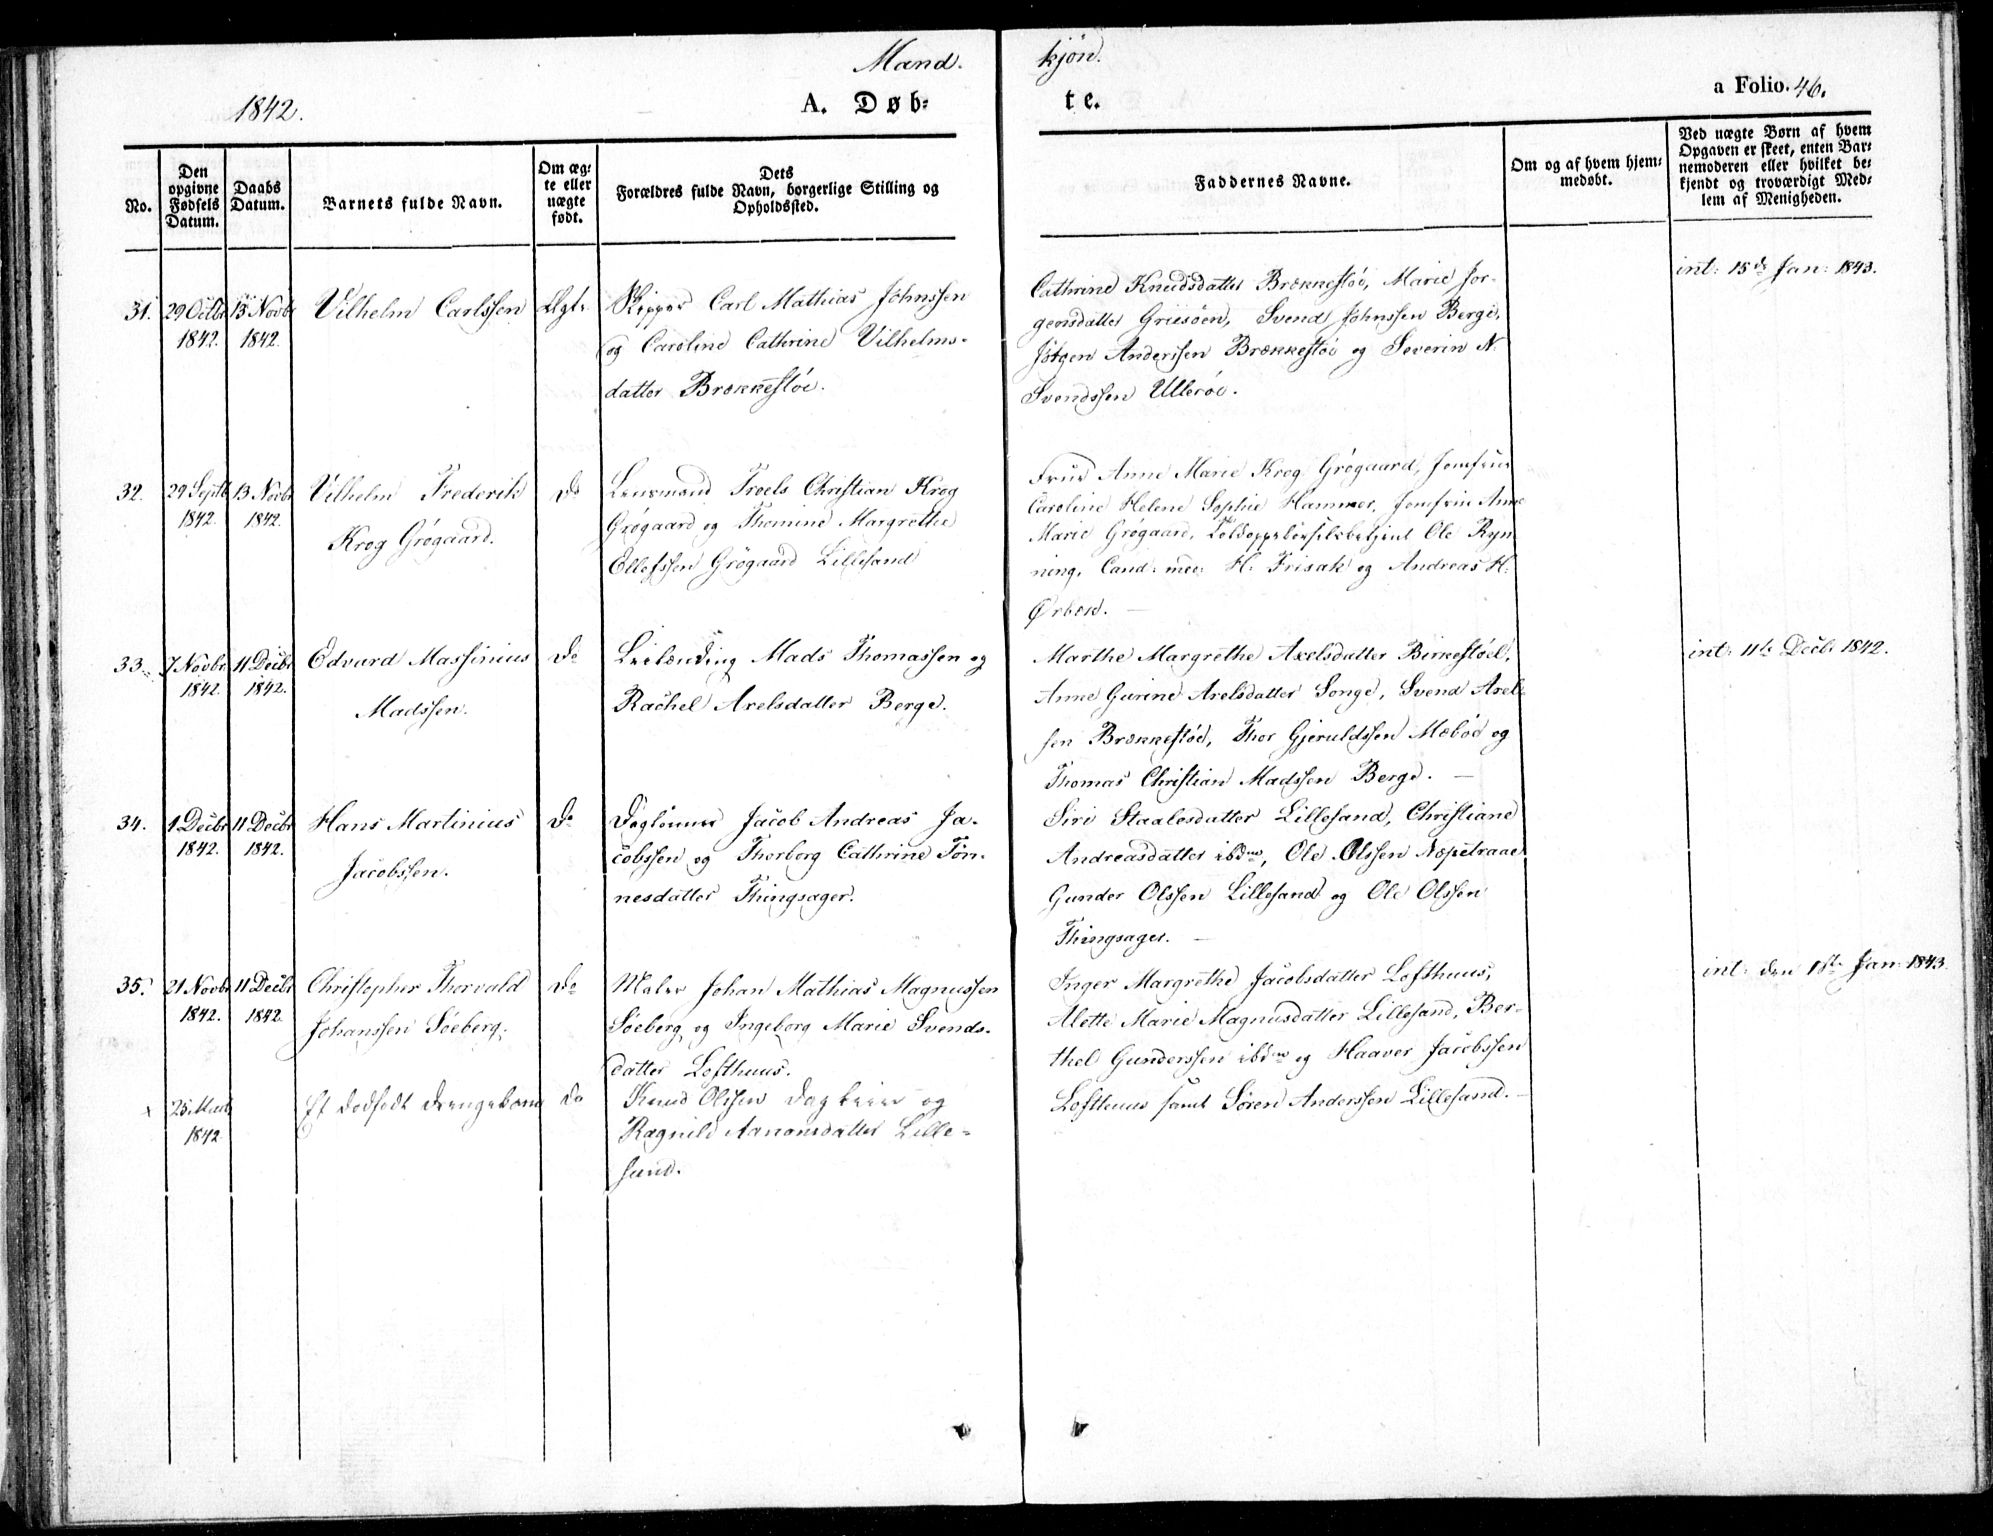 Mand. kjøn.
1842. A. Døb- te. a Folio. 46.
No.
Den opgivne Fødsels Datum.
Daabs Datum.
Barnets fulde Navn.
Om æg-
te eller
uægte
født.
Dets
Forældres fulde Navn, borgerlige Stilling og
Opholdssted.
Faddernes Navne.
Om og af hvem hjem-
medøbt.
Ved uægte Børn af hvem
Opgaven er skeet, enten Bar-
nemoderen eller hvilket be-
kjendt og troværdigt Med-
lem af Menigheden.
31. 29 Octbr 1842. 13 Novbr 1842.
Vilhelm Carlssen
Ægte
Skipper Carl Mathias Johnssen
og Caroline Cathrine Vilhelms-
datter Brækkestøe.
Cathrine Knudsdatter Brækkestøe, Marie Jør-
gensdatter Griisøen, Svend Johnssen Berge,
Jörgen Anderssen Brækkestøe og Severin N.
Svendssen Ulleröe.
int: 15de Jan: 1843.
32. 29 Septb 1842. 13 Novbr 1842.
Vilhelm Frederik
Krog Grøgaard.
Do
Lensmand Troels Christian Krog
Grøgaard og Thomine Margrethe
Ellefssen Grögaard Lillesand
Frue Anne Marie Krog Grøgaard, Jomfrue
Caroline Helene Sophie Hammer, Jomfrue Anne
Marie Grøgaard, Toldopsynsbetjent Ole Ryn
ning, Cand: med: H. Frisak og Andreas H.
Ørbek. —
33. 7 Novbr 1842. 11 Decbr 1842.
Edvard Massinius
Madssen.
Do
Leilænding Mads Thomassen og
Rachel Axelsdatter Berge.
Marthe Margrethe Axelsdatter Birkestøel,
Anne Gurine Axelsdatter Songe, Svend Axel-
sen Brækkestöe, Thor Gjeruldssen Mæbøe og
Thomas Christian Madssen Berge. —
int: 11te Decbr 1842.
34. 1 Decbr 1842. 11 Decbr 1842.
Hans Martinius
Jacobssen.
Do
Dagleiner Jacob Andreas Ja-
cobssen og Thorborg Cathrine Tøn-
nesdatter Thingsager.
Siri Staalesdatter Lillesand, Christiane
Andreasdatter ibdm, Ole Olssen Næpetraae
Gunder Olssen Lillesand og Ole Olssen
Thingsager. —
35. 21 Novbr 1842. 11 Decbr 1842.
Christopher Thorvald
Johanssen Søeberg.
Do
Maler Johan Mathias Magnussen
Søeberg og Ingeborg Marie Svends-
datter Lofthuus.
Inger Margrethe Jacobsdatter Lofthuus,
Alette Marie Magnusdatter Lillesand, Ber-
thel Gunderssen ibdm og Haaver Jacobssen
Lofthuus samt Søren Anderssen Lillesand. —
int: den 1ste Jan: 1843.
25 Marts 1842
Et dødfødt drengebarn
Do
Knud Olssen Dagleier og
Ragnild Aanonsdatter Lille-
sand.